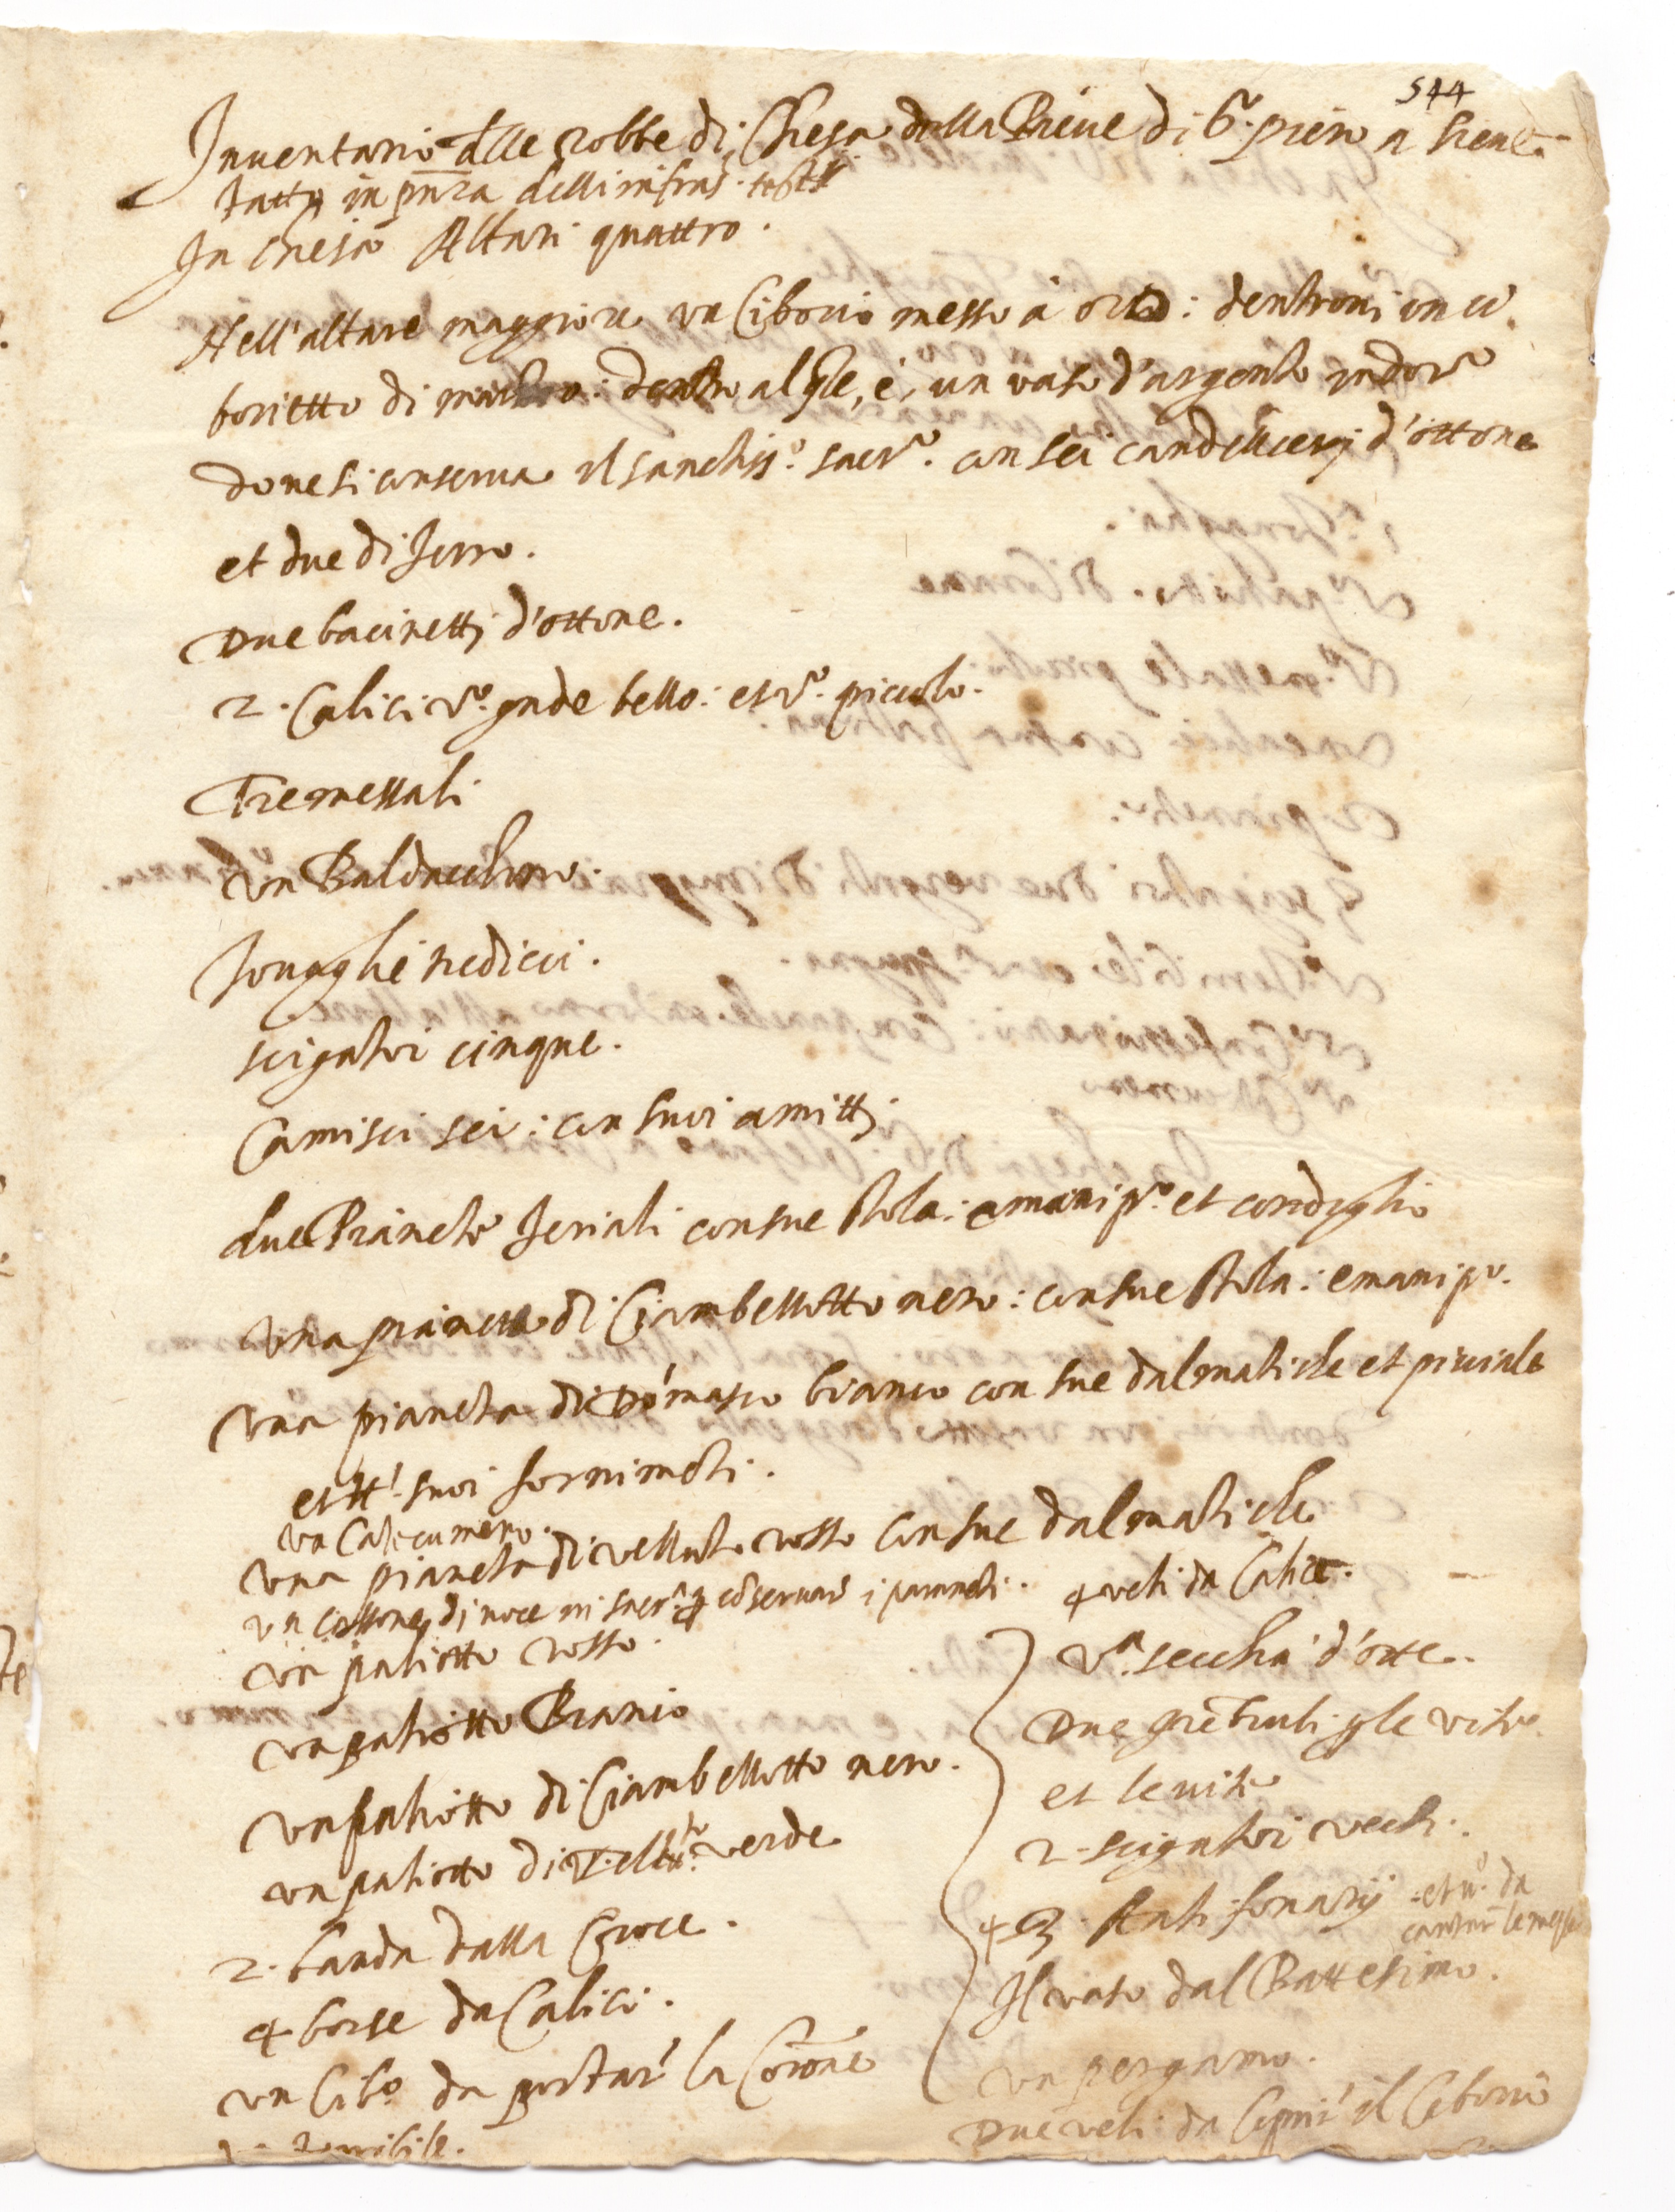 544
Inventario delle robbe di Chiesa della Pieve di S.to piero a
fatto in pñza delli infras.ti testi
In chiesa Altari quattro.
Nell'altare maggiore un Ciborio messo à oro: dentrovi un ci
borietto di dentro al qle, è, un vaso d'argento indor.to
dove si conserva il santiss.o sacr.to con sei candellieri d'ottone
et due di ferro.
Due bacinetti d'ottone.
2. Calici v.o grãde bello: et v.o piccolo.
Tre messali
un Baldacchino.
Tovaglie tredicci.
sciugatoi cinque.
Camisci sei: con suoi amitti
due Pianete feriali con sue stola: e manip.o et cordiglio
una pianeta di Ciambellotto nero: con sue stola: e manip.o
una pianeta di Domasco bianco con sue dalmatiche et piviale
et tt.i suoi fornimẽti.
un Catecumeno.
una pianeta di velluto rosso con sue dalmatiche
un cassone di noce in sacr.a p cõservar i paramẽti.
4 veli da Calice.
un paliotto rosso.
un paliotto Bianco
un paliotto di Ciambellotto nero.
un paliotto di verde
2. banda dalla Croce.
4 borse da Calici.
un Cib.o da portar' la Comõne
un Turribile.
v.a secchia d'otte.
Due
et le
2. sciugatoi vecchi.
4 Antifonarij et u.o da
cantar' le messe
Il vaso dal Battesimo.
un pergamo.
Due veli: da coprir' il Ciborio